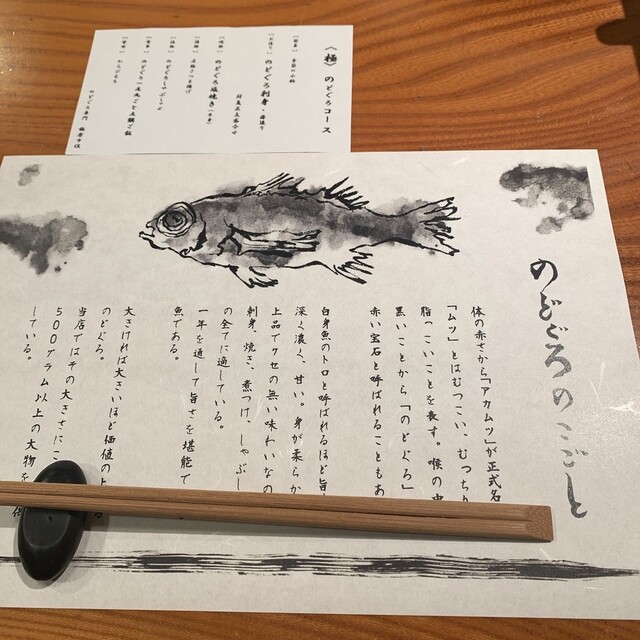 〈極〉のどぐろコース
のどぐろ刺身・湯造り
のどぐろ塩焼き
のどぐろしゃぶしゃぶ
わらびもち
のどぐろのこごと
体の赤さから「アカムツ」が正式名
「ムツ」とはむつこい、むっちり
脂っこいことを表す。喉の中
黒いことから「のどぐろ」
赤い宝石と呼ばれることもあ
白身魚のトロと呼ばれるほど旨
深く濃く、甘い。身が柔らか
上品でクセの無い味わいなの
刺身、焼き、煮つけ、しゃぶし
の全てに適している。
一年を通して旨さを堪能で
魚である。
大きければ大きいほど価値の上
のどぐろ。
当店ではその大きさにこ
500グラム以上の大物を
している。